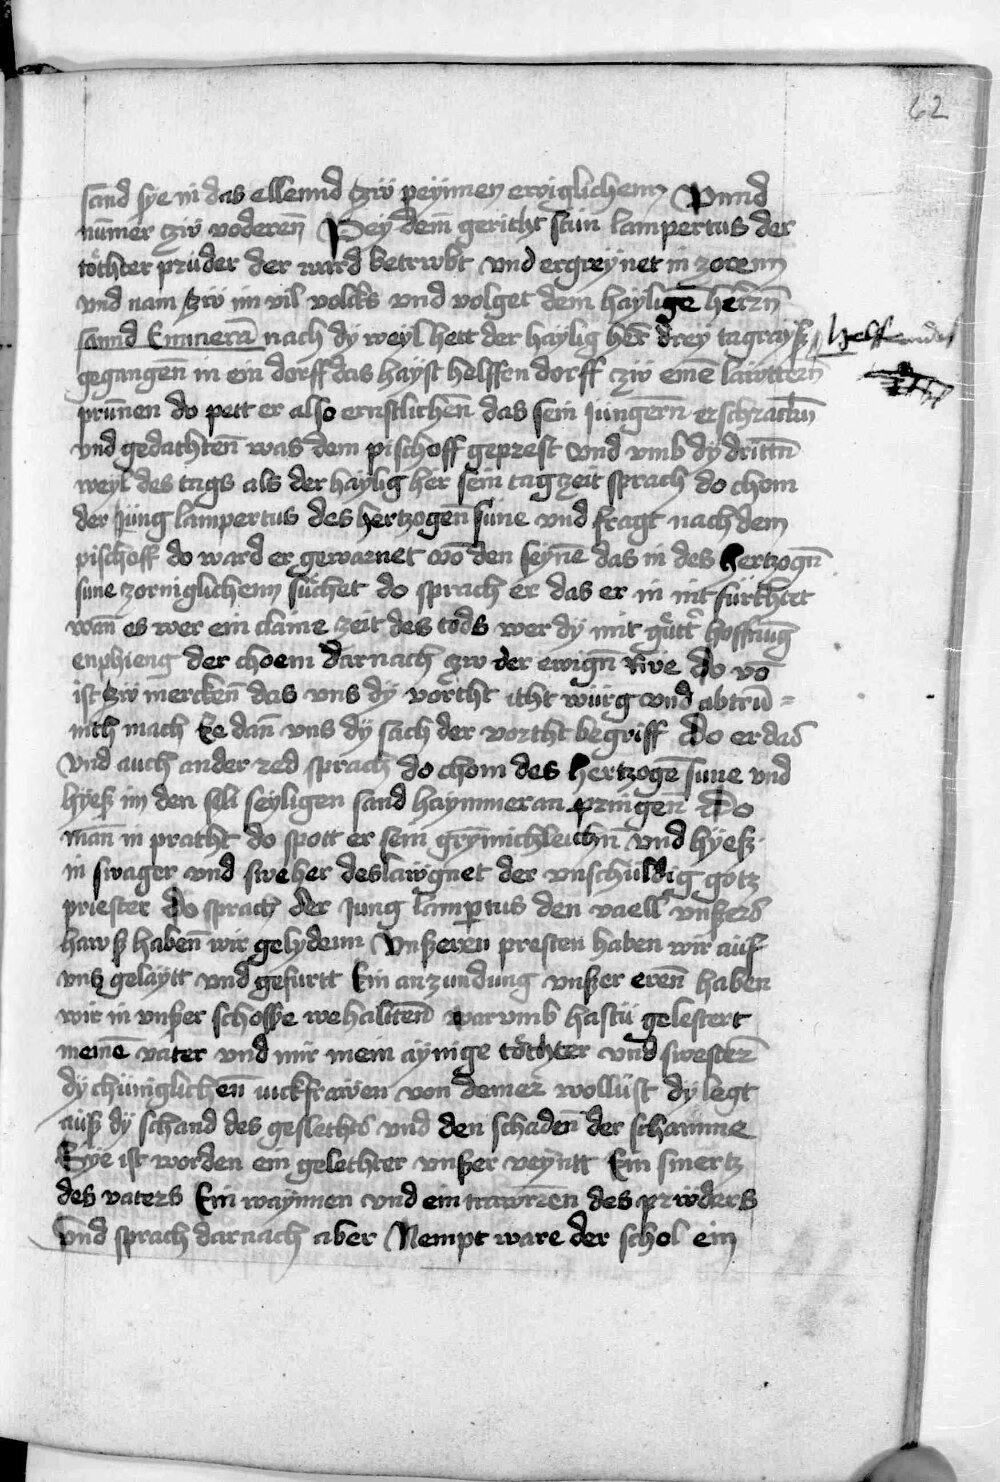 62
sand sye in das ellennd tzw peynnen ewiglichenn Vnnd
nūmer zw voderen̄ Pey dem̄ gericht stūn lampertus der
töchter prüder der ward betrwbt vnd ergreynet in zorenn
vnd nam tzw im vil volcks vnd volget dem hayligē herrn̄
sannd Emmeran̄ nach dy weyl hett der haylig her drey tagrayß
helffendorf
gegangen̄ in ein dorff das hayst helffen dorff zw einē lawttern̄
prunnen do pett er also ernstlichen̄ das sein Jungern̄ erschracken̄
vnd gedachten̄ was dem pischoff geprest vnd vmb dy dritten̄
weyl des tags als der haylig her sein tagzeit sprach do chom
der Jüng lampertus des hertzogen̄ sune vnd fragt nach dem
pischoff do ward er gewarnet vō den seynē das in des hertzogn̄
sune zorniglichenn süchet do sprach er das er in nit fürchtet
wan̄ es wer ein claine zeit des tods wer dy mit gütt' hoffnūg
enphieng der choem darnach zw der ewign̄ rwe do vō
ist zw mercken̄ das vns dy vorcht icht würg vnd abtrū=
nich mach Ee dan̄ vns dy sach der vorcht begriff do er das
vnd auch ander red sprach do chom des hertzogē sune vnd
hyeß im den seli seyligen sand haymmeran pringen̄ Do
man̄ in pracht do spott er sein grymichleichn̄ vnd hyeß
in swager vnd sweher deslawgnet der vnschuldig gotz
priester do sprach der Jung lamprtus den vaell vnßers
hawß haben̄ wir gelydenn Vnßeren presten haben wir auf
vns gelaytt vnd gefurtt Ein anzundung vnßer eren̄ haben
wir in vnßer schosse wehalten̄ warvmb hastu gelestert
meinē vater vnd mir mein aynige töchter vnd swester
dy chüniglichen̄ iuckfrawen von deiner wollüst dy legt
auß dy schand des geslechts vnd den schaden̄ der schamme
Sye ist worden ein gelechter vnßer veyntt Ein smertz
des vaters Ein waynnen vnd ein trawren̄ des prüders
vnd sprach darnach aber Nempt ware der schol ein